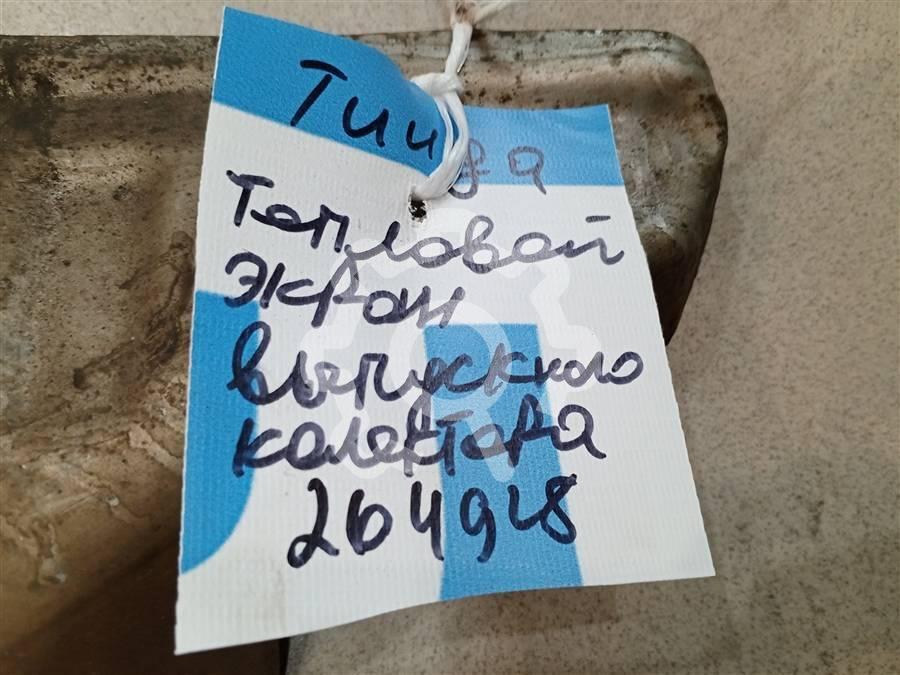 Тиида
Тепловой
экран
выпускного
колектора
264948